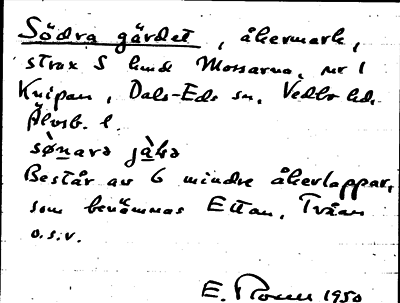 Södra gärdet, åkermark,
strax S hmd Mossarna, nr 1
Knipan, Dals-Eds sn, Vedbo hd.
Älvsb. l.
sø̀nara jàḷə
Består av 6 mindre åkerlappar,
som benämnas Ettan, Tvåan
o.s.v.
E. 1950